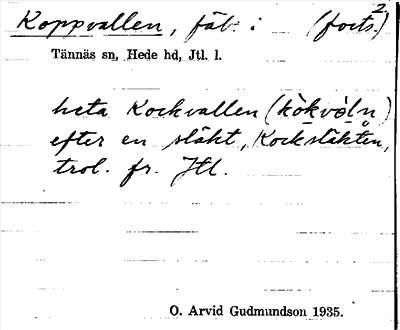 Koppvallen, fäb. i (forts.) 2
Tännäs sn, Hede hd, Jtl. l.
heta Kockvallen (kòkvàln)
efter en släkt, Kocksläkten,
trol. fr. Jtl.
O. Arvid Gudmundson 1935.